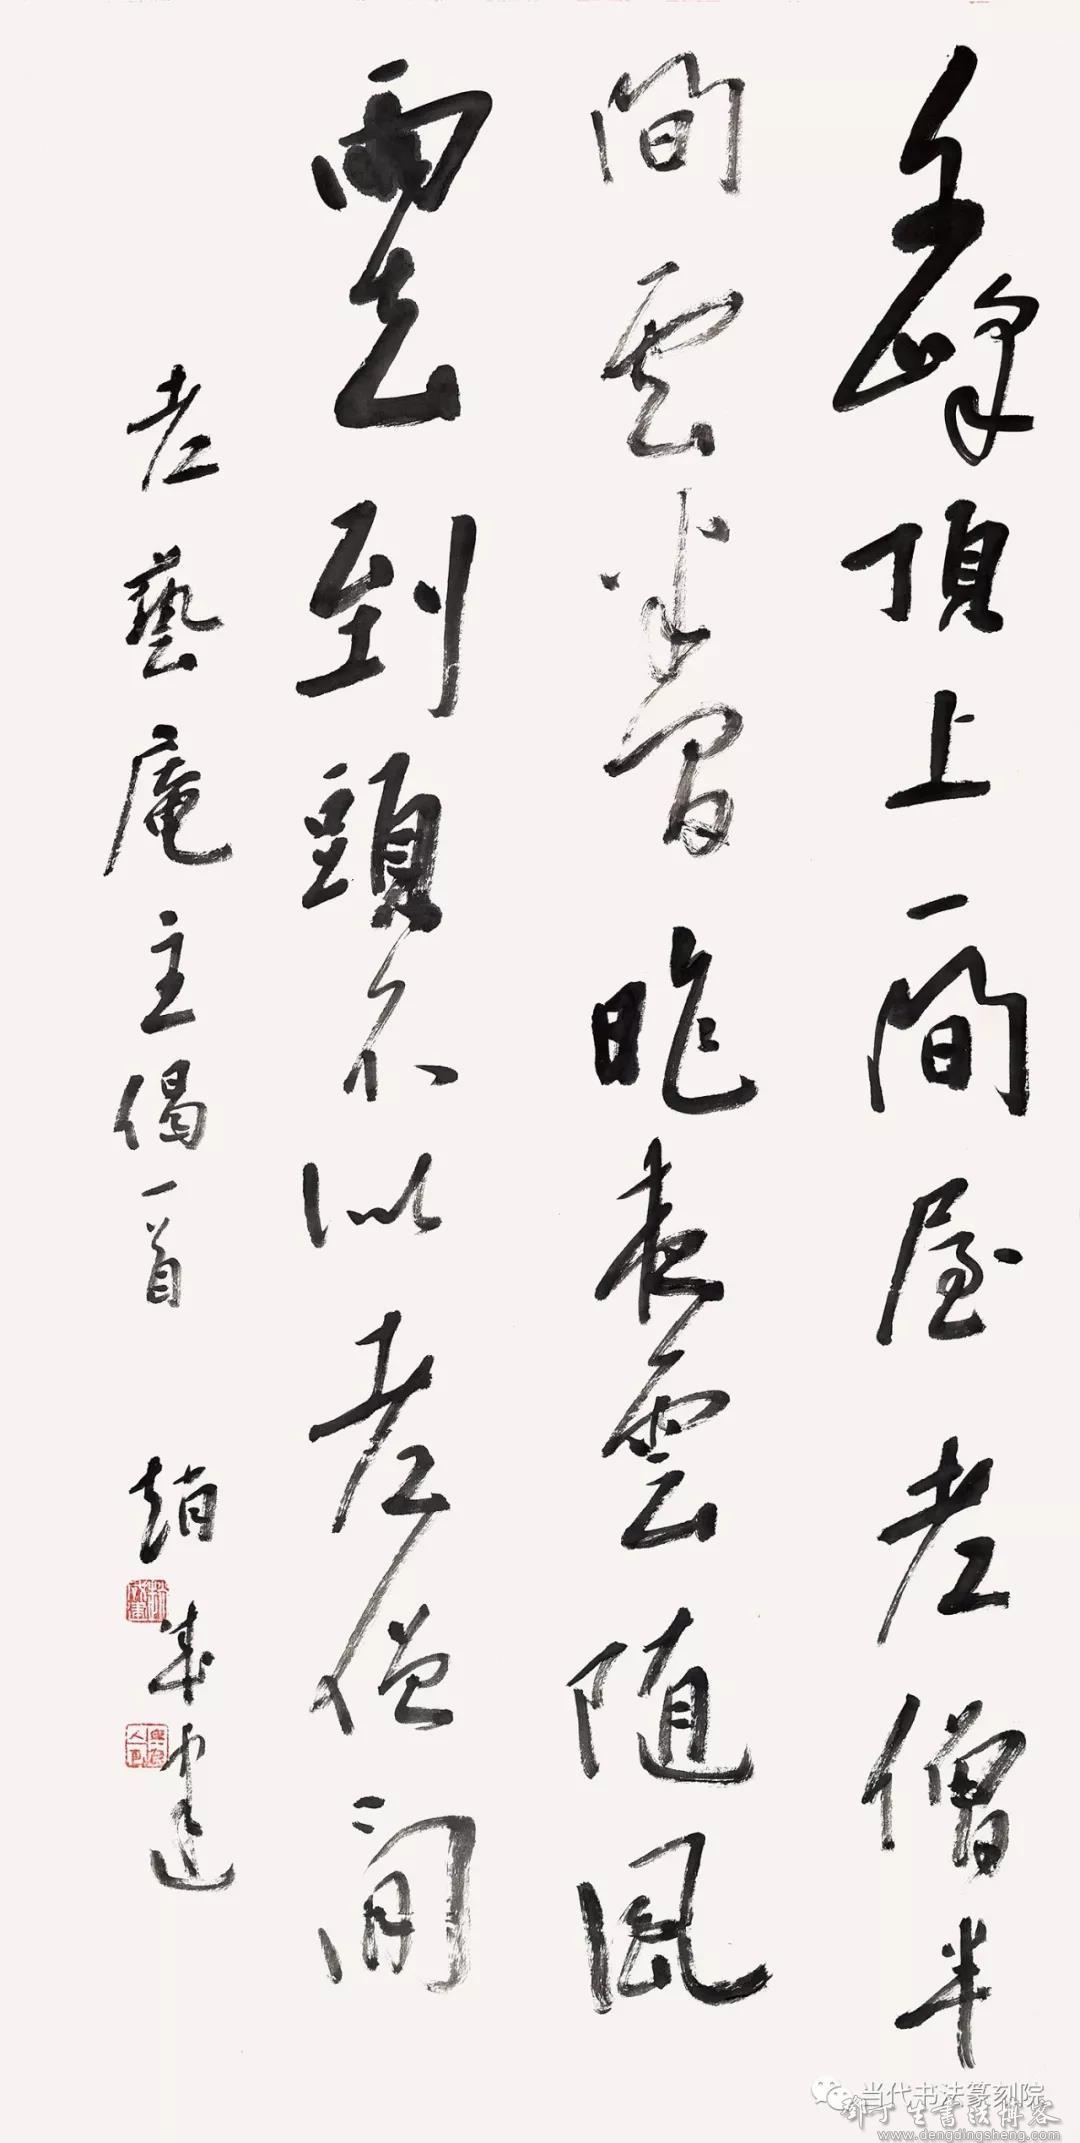 千峰頂上一間屋老僧半
間雲半間昨夜雲隨風
雨去到頭不似老僧閒
老藝庵主偈一首 趙
当代书法篆刻院
邓丁生书法博客
www.dengdingsheng.com